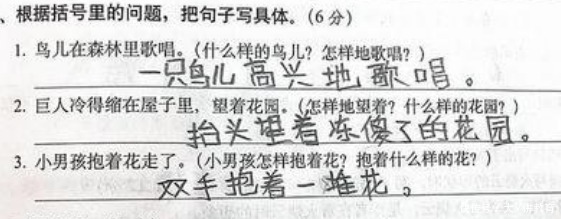 、根据括号里的问题，把句子写具体。(6分)
1. 鸟儿在森林里歌唱。(什么样的鸟儿？怎样地歌唱？)
一只鸟儿高兴地歌唱。
2. 巨人冷得缩在屋子里，望着花园。(怎样地望着？什么样的花园？)
抬头望着冻傻了的花园。
3. 小男孩抱着花走了。(小男孩怎样抱着花？抱着什么样的花？)
双手抱着一堆花。